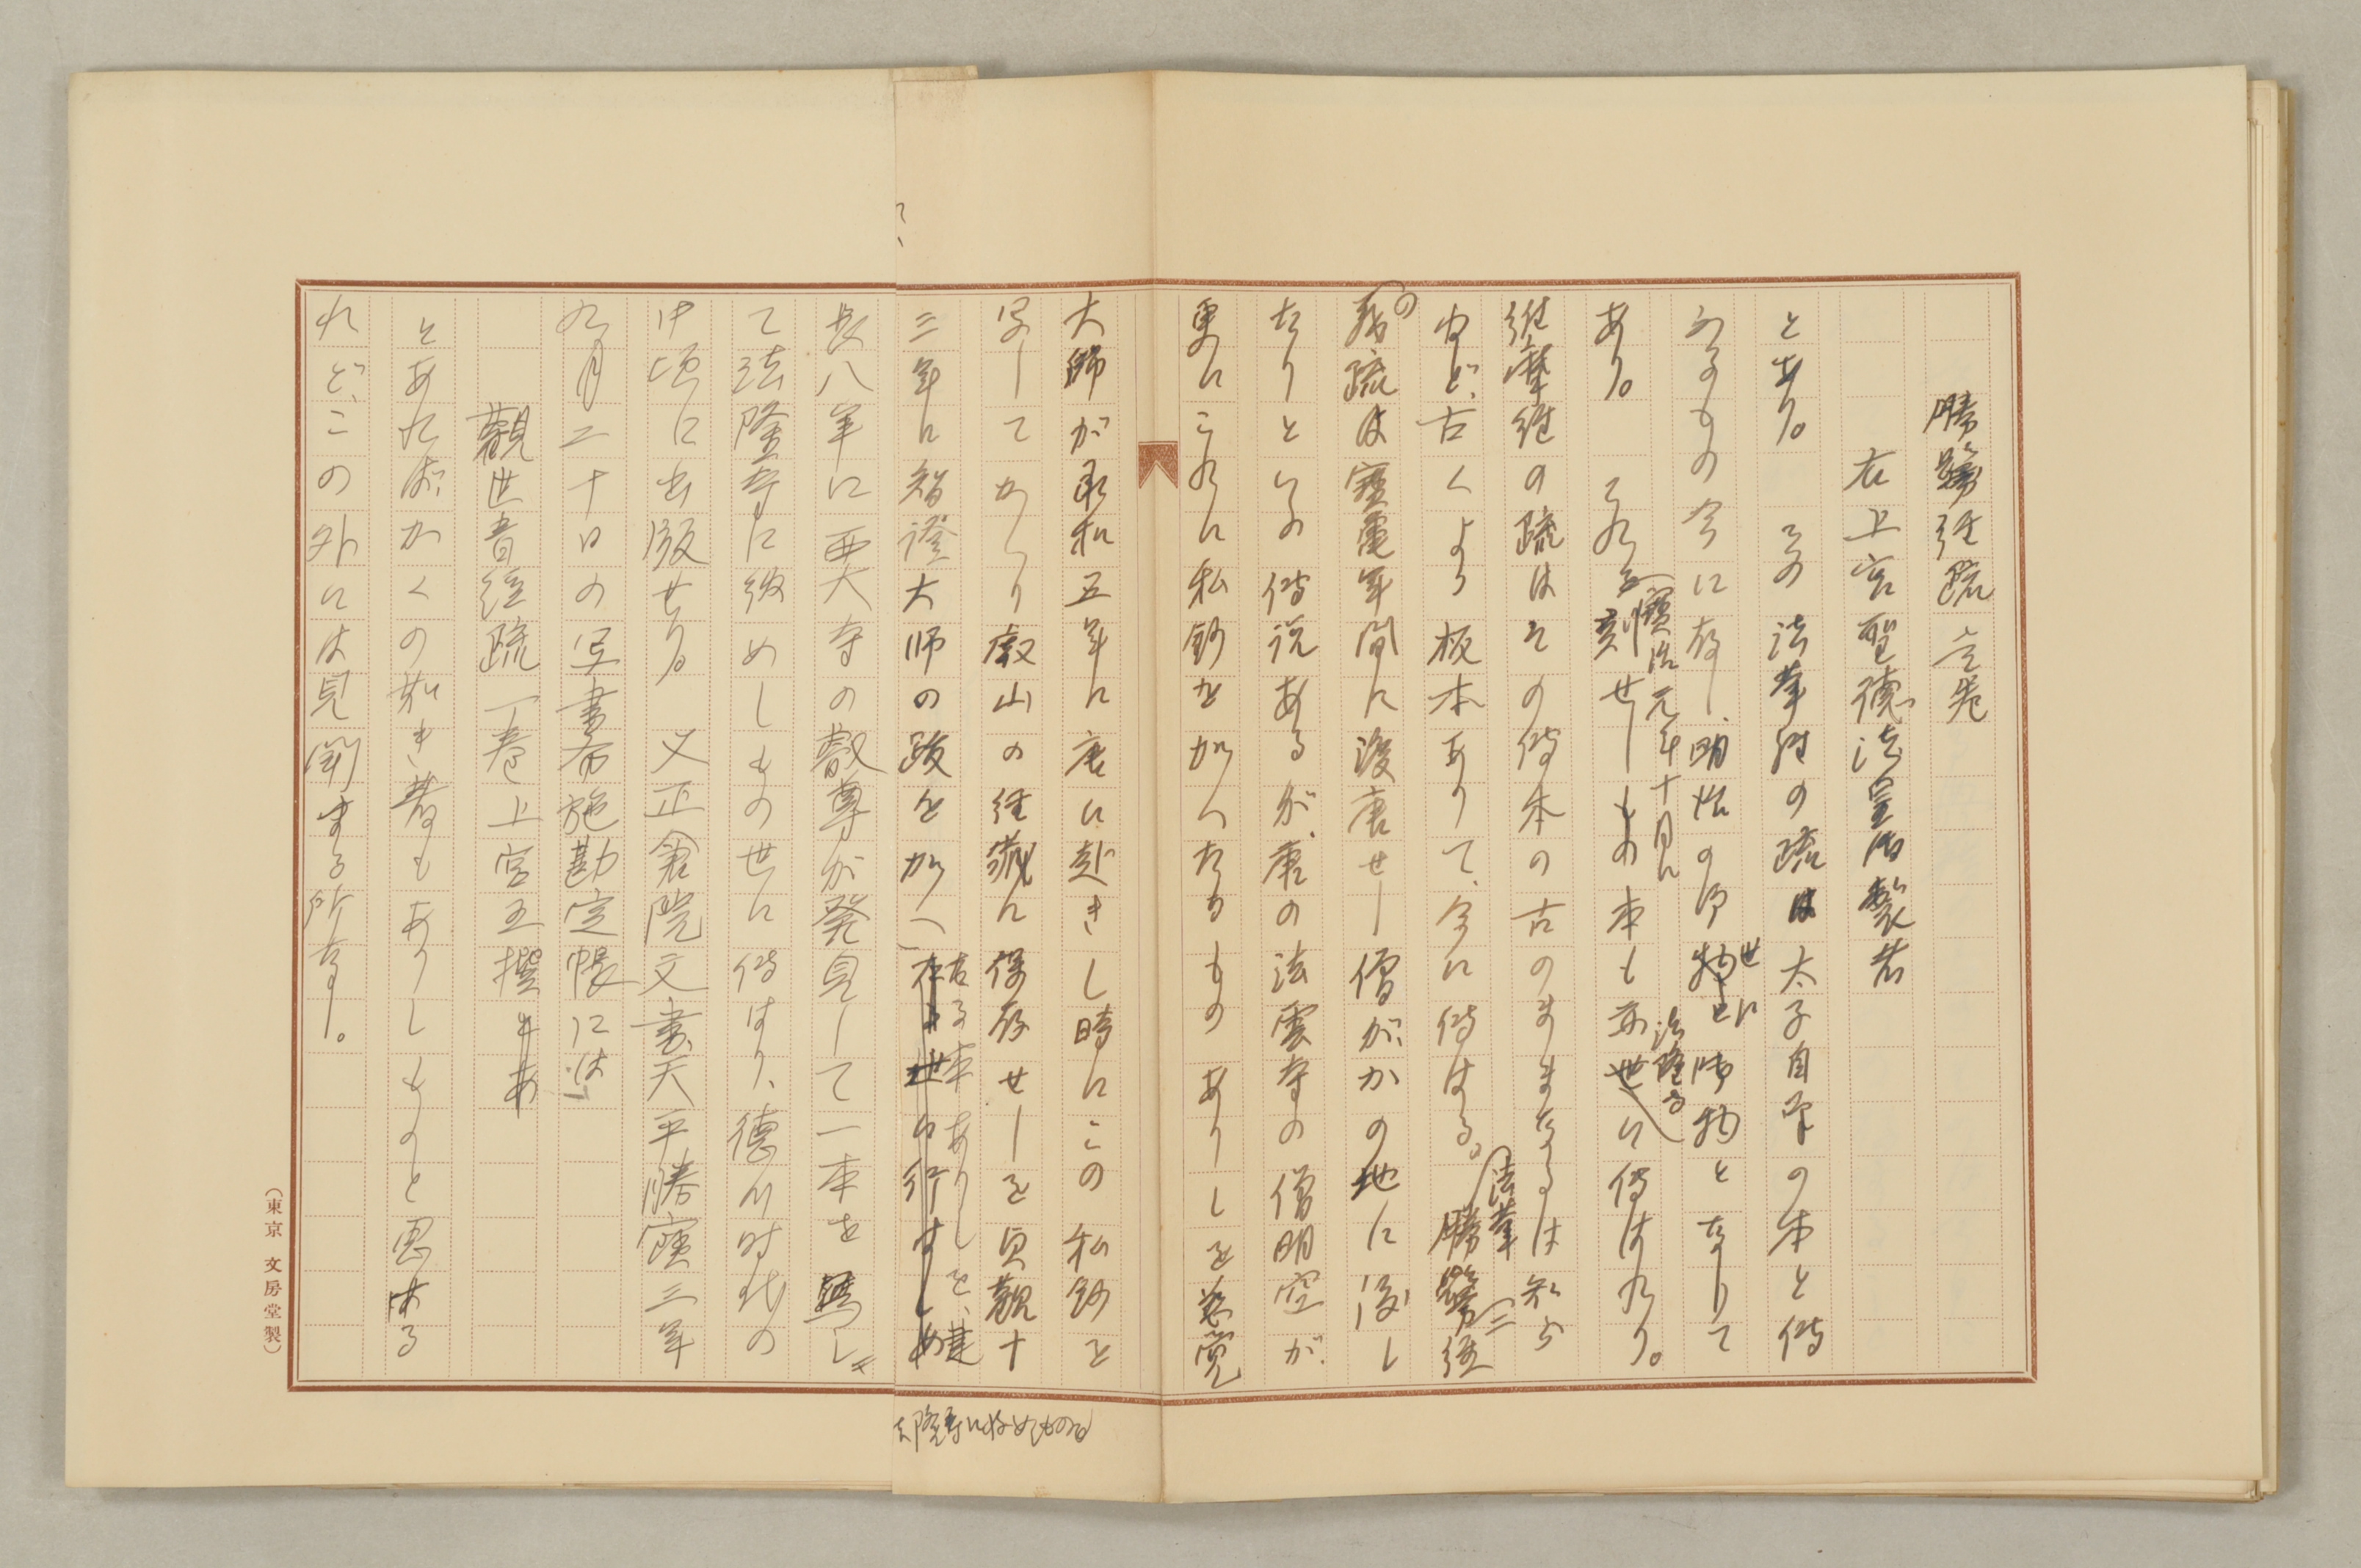 勝鬘経疏一巻
右上宮聖徳法皇御製者
とあり。その法華経の疏は太子自筆の本と傳
ふるもの今に存し、明治の御世に御物となりて
あり。これを寶治元年十月に法隆寺
刻せしもの本も亦世に傳はれり。
維摩経の疏はその傳本の古のままなるは知ら
ねど、古くより板本ありて、今に傳はる。法華
勝鬘経
の義疏は寶亀年間に渡唐せし僧がかの地に渡し
たりといふ傳説あるが、唐の法雲寺の僧明空が
更にこれに私鈔を加へたるものありしを慈覚
大師が承和五年に唐に赴きし時にこの私鈔を
写してかへり叡山の経蔵に保存せしを貞観十
三年に智證大師の跋を加へ
たる本ありしを、建
長八年に西大寺の叡尊が発見して一本を写し
て法隆寺に納めしもの世に傳はり、徳川時代の
中頃に出版せり。又正倉院文書天平勝宝三年
九月二十日の写書布施勘定帳には
觀世音経疏一巻上宮王撰
とあればかくの如き書もありしものと思はる
れど、この外には見聞する所なし。
法隆寺に納めしものを
(東京 文房堂製)